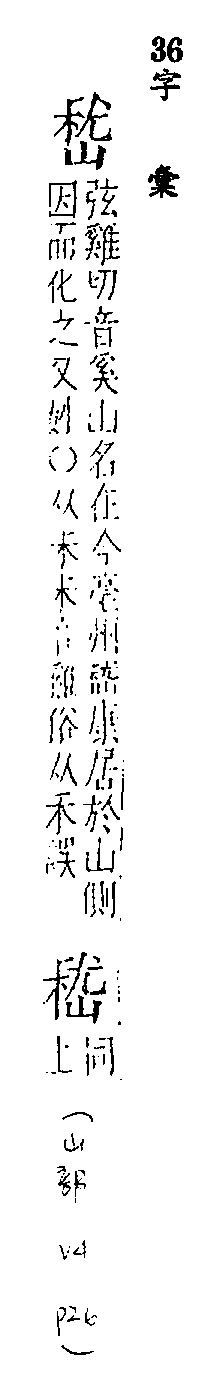 36
字彙
嵇
弦雞切音奚山名在今亳州康居於山側
因而化之又姓○从𥝌𥝌音雞俗从禾誤
嵆
同
上
(山部 V4 P26)